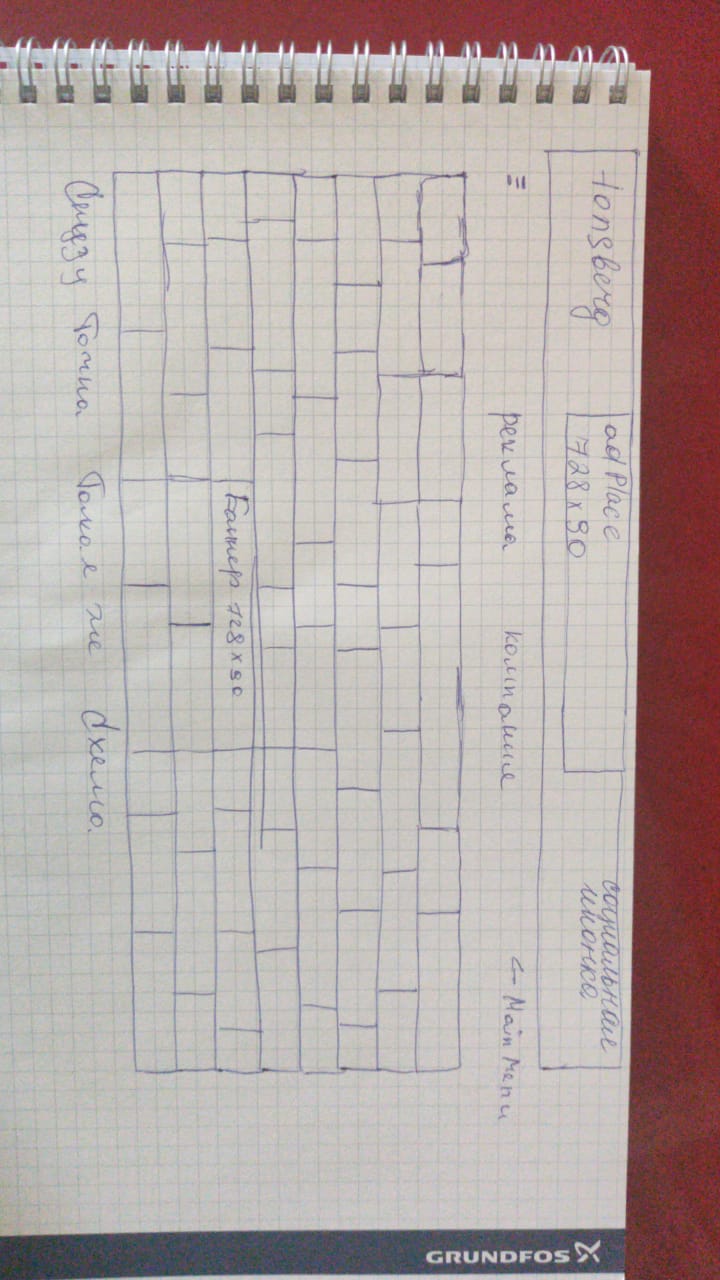 tonsberg
ad Place
728 x 90
социальная
иконка
реклама компания ← Main Menu
Баннер 728 x 90
Снизу Точна Такая же Схема.
GRUNDFOS